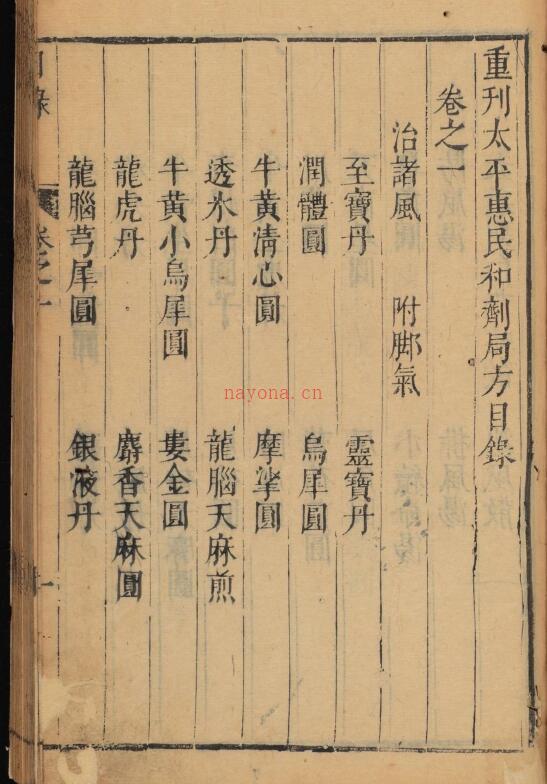 重刊太平惠民和劑局方目錄
卷之一
治諸風 附脚氣
至寶丹 靈寶丹
潤體圓 烏犀圓
牛黃清心圓 摩挲圓
透氷丹 龍腦天麻煎
牛黃小烏犀圓 婁金圓
龍虎丹 麝香天麻圓
龍腦芎犀圓 銀液丹
目錄 卷之一 一
nayona.cn